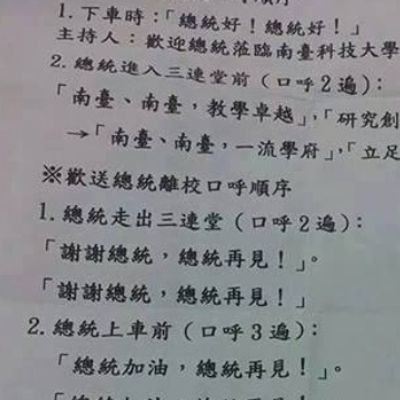 順序
1.下車時:「總統好!總統好!」
主持人:歡迎總統蒞臨南臺科技大學
2.總統進入三連堂前(口呼2遍):
「南臺、南臺,教學卓越」,「研究創
→「南臺、南臺,一流學府」,「立足
※歡送總統離校口呼順序
1.總統走出三連堂(口呼2遍):
「謝謝總統,總統再見!」。
「謝謝總統,總統再見!」
2.總統上車前(口呼3遍):
「總統加油,總統再見!」。
「總統加油,總統再見!